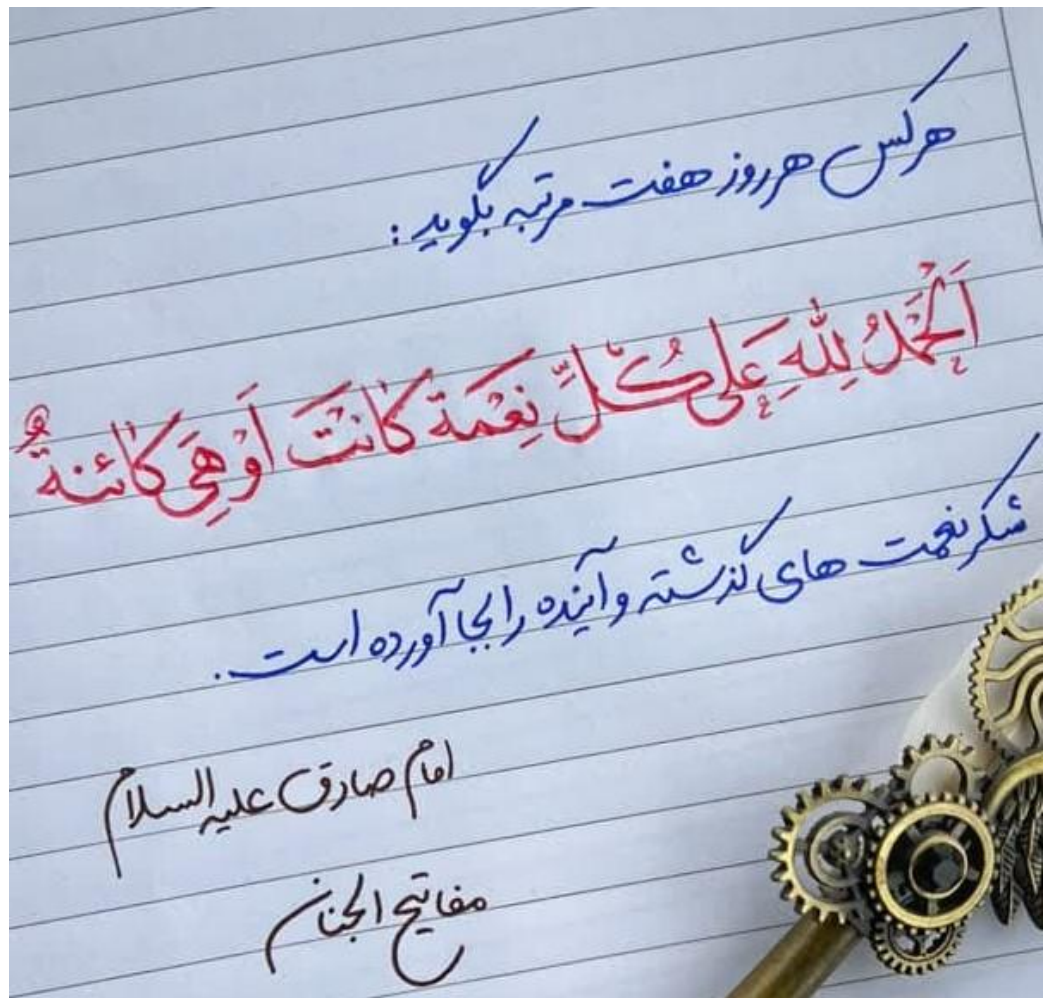 هرکس هرروز هفت مرتبه بگوید:
اَلْحَمْدُ لِلّٰهِ عَلٰى كُلِّ نِعْمَة كٰانَتْ اَوْ هِيَ كٰائنةٌ
شکر نعمت های گذشته و آینده را بجا آورده است.
امام صادق علیه السلام
مفاتیح الجنان